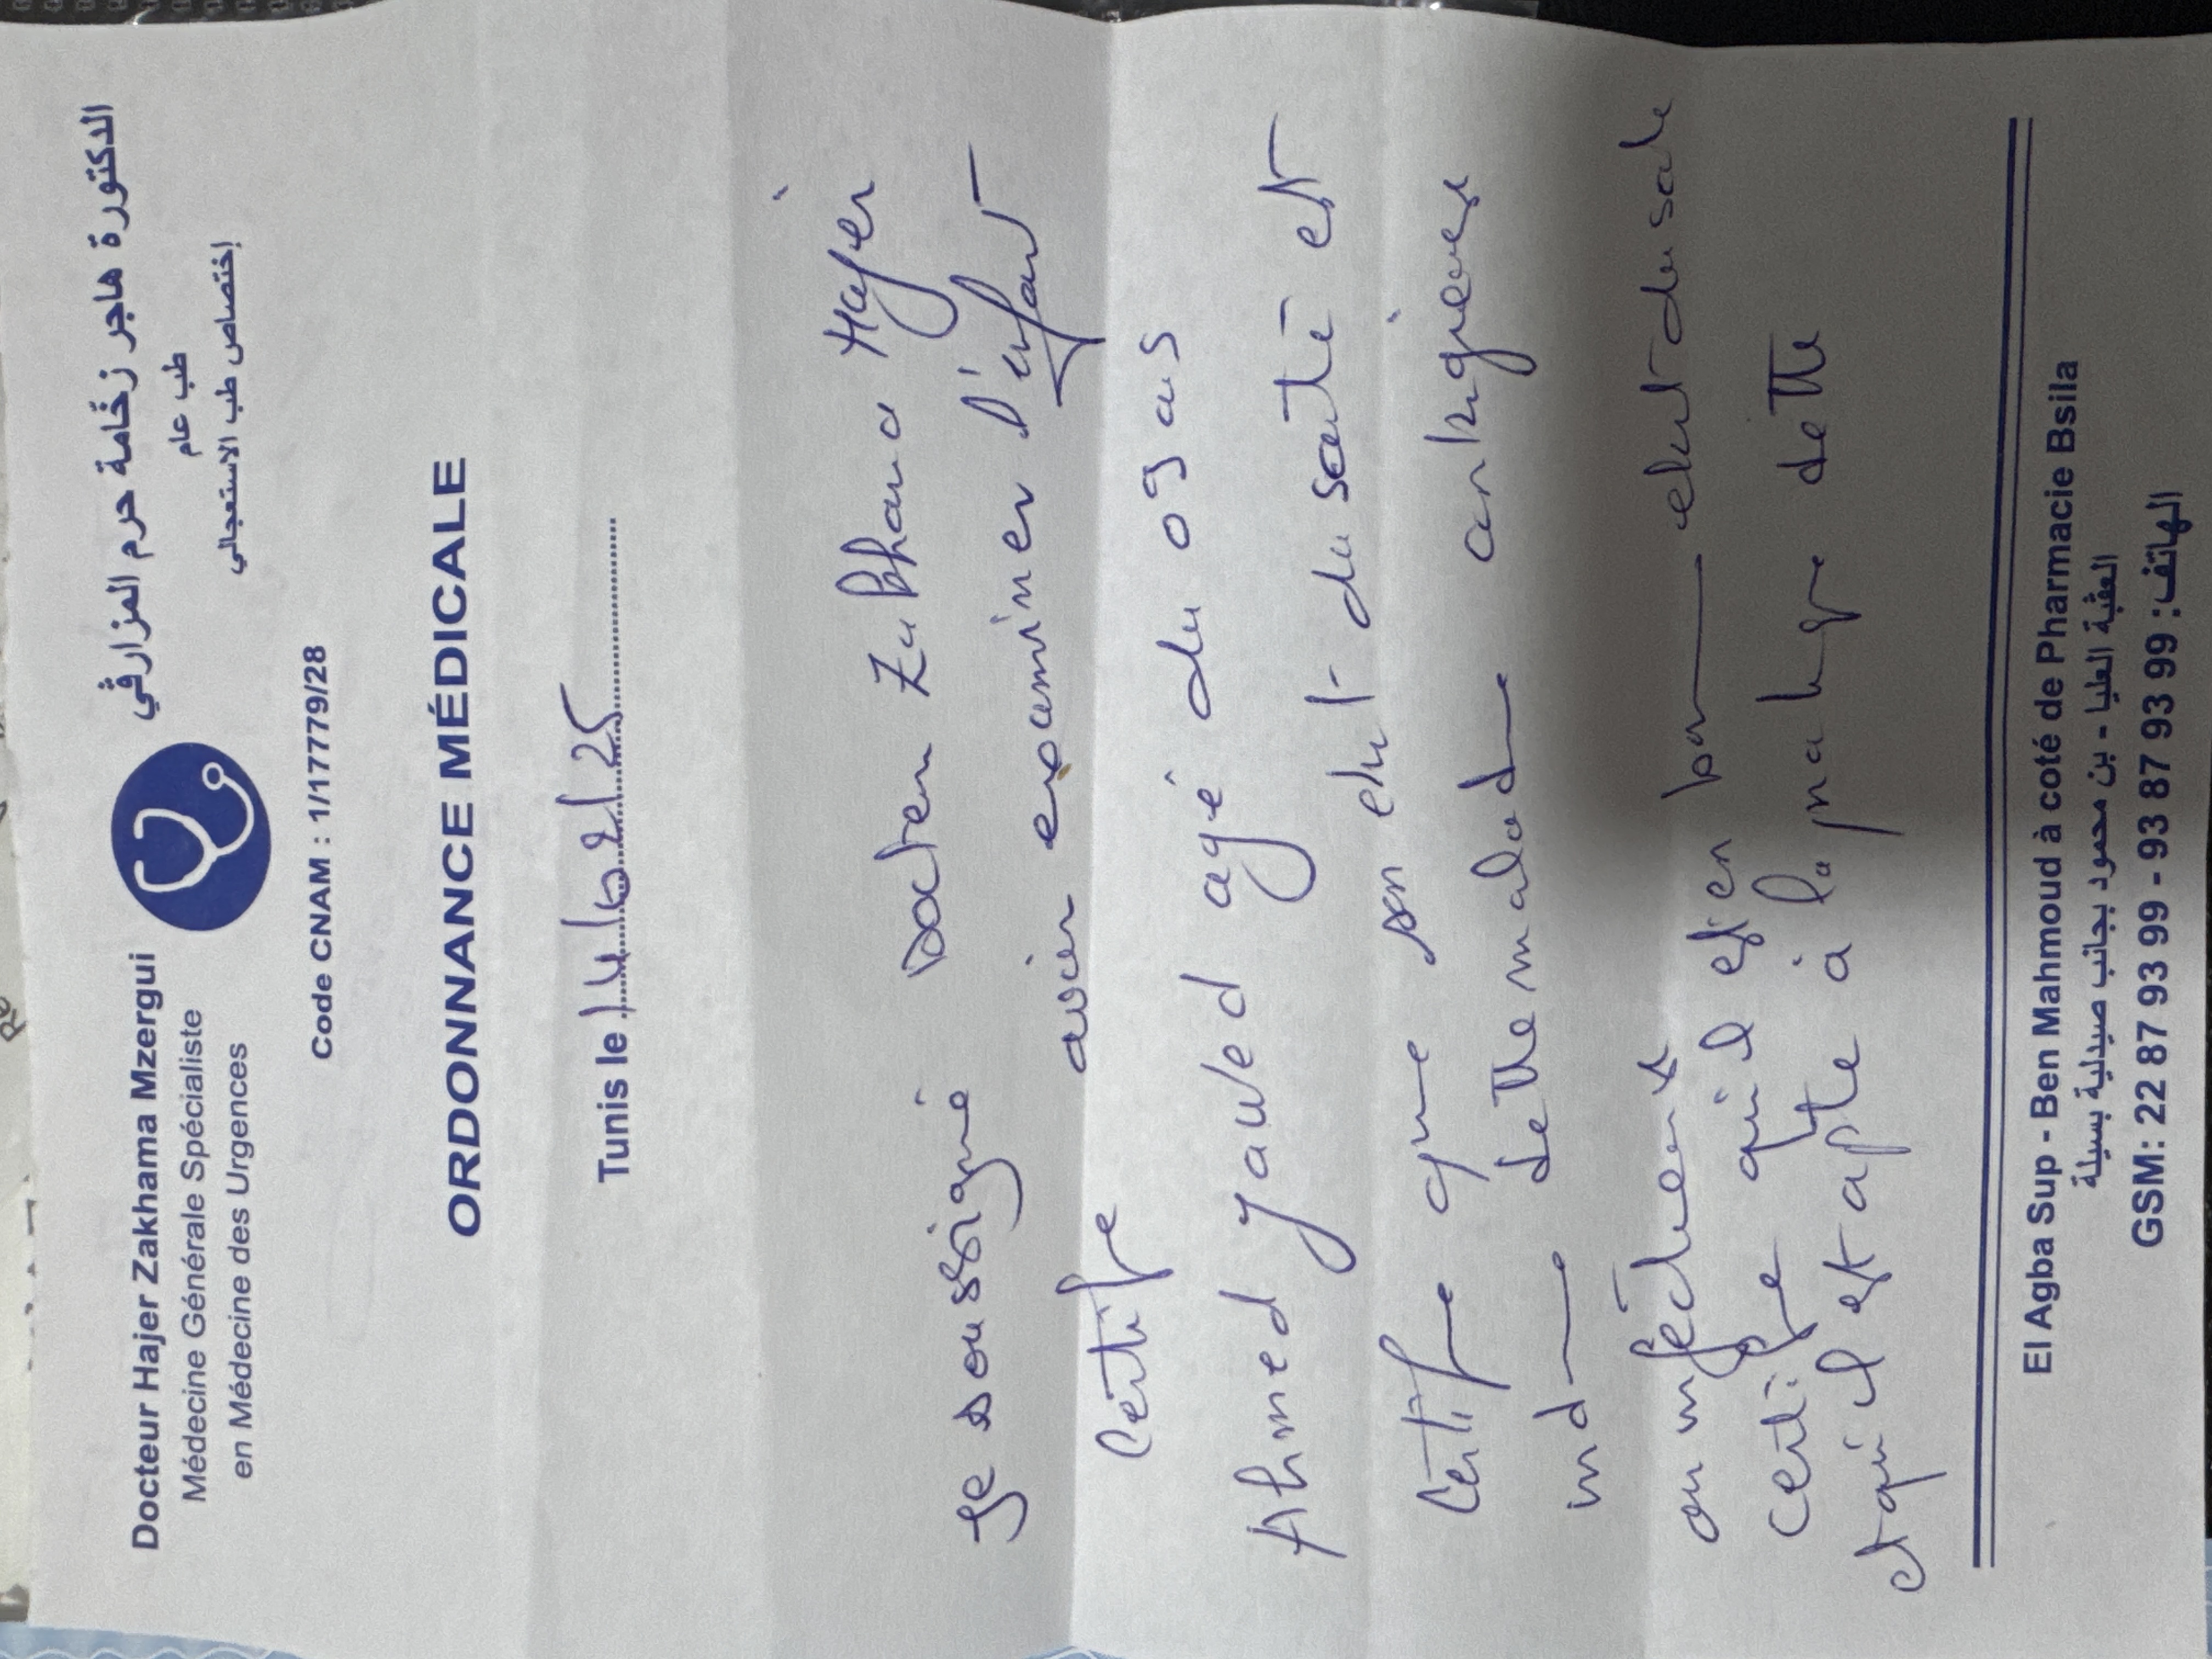 Docteur Hajer Zakhama Mzergui
Médecine Générale Spécialiste
en Médecine des Urgences
الدكتورة هاجر زخّامة حرم المزارڤي
طب عام
إختصاص طب الاستعجالي
Code CNAM : 1/17779/28
ORDONNANCE MÉDICALE
Tunis le 14/02/25
Je soussigné Docteur Zakhama Hajer
Certifie avoir examiner l'enfant
Ahmed yaved agé de 09 ans
Certifie que son etat de santé est
de malad
certifie qu'il est en bon etat de sante
et qu'il est apte à la
El Agba Sup - Ben Mahmoud à coté de Pharmacie Bsila
العڤبة العليا - بن محمود بجانب صيدلية بسيلة
GSM: 22 87 93 99 - 93 87 93 99 :الهاتف